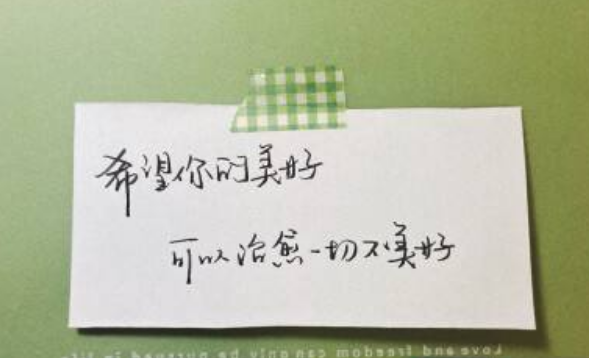 希望你的美好
可以治愈一切不美好
Love and freedom can only be pursued